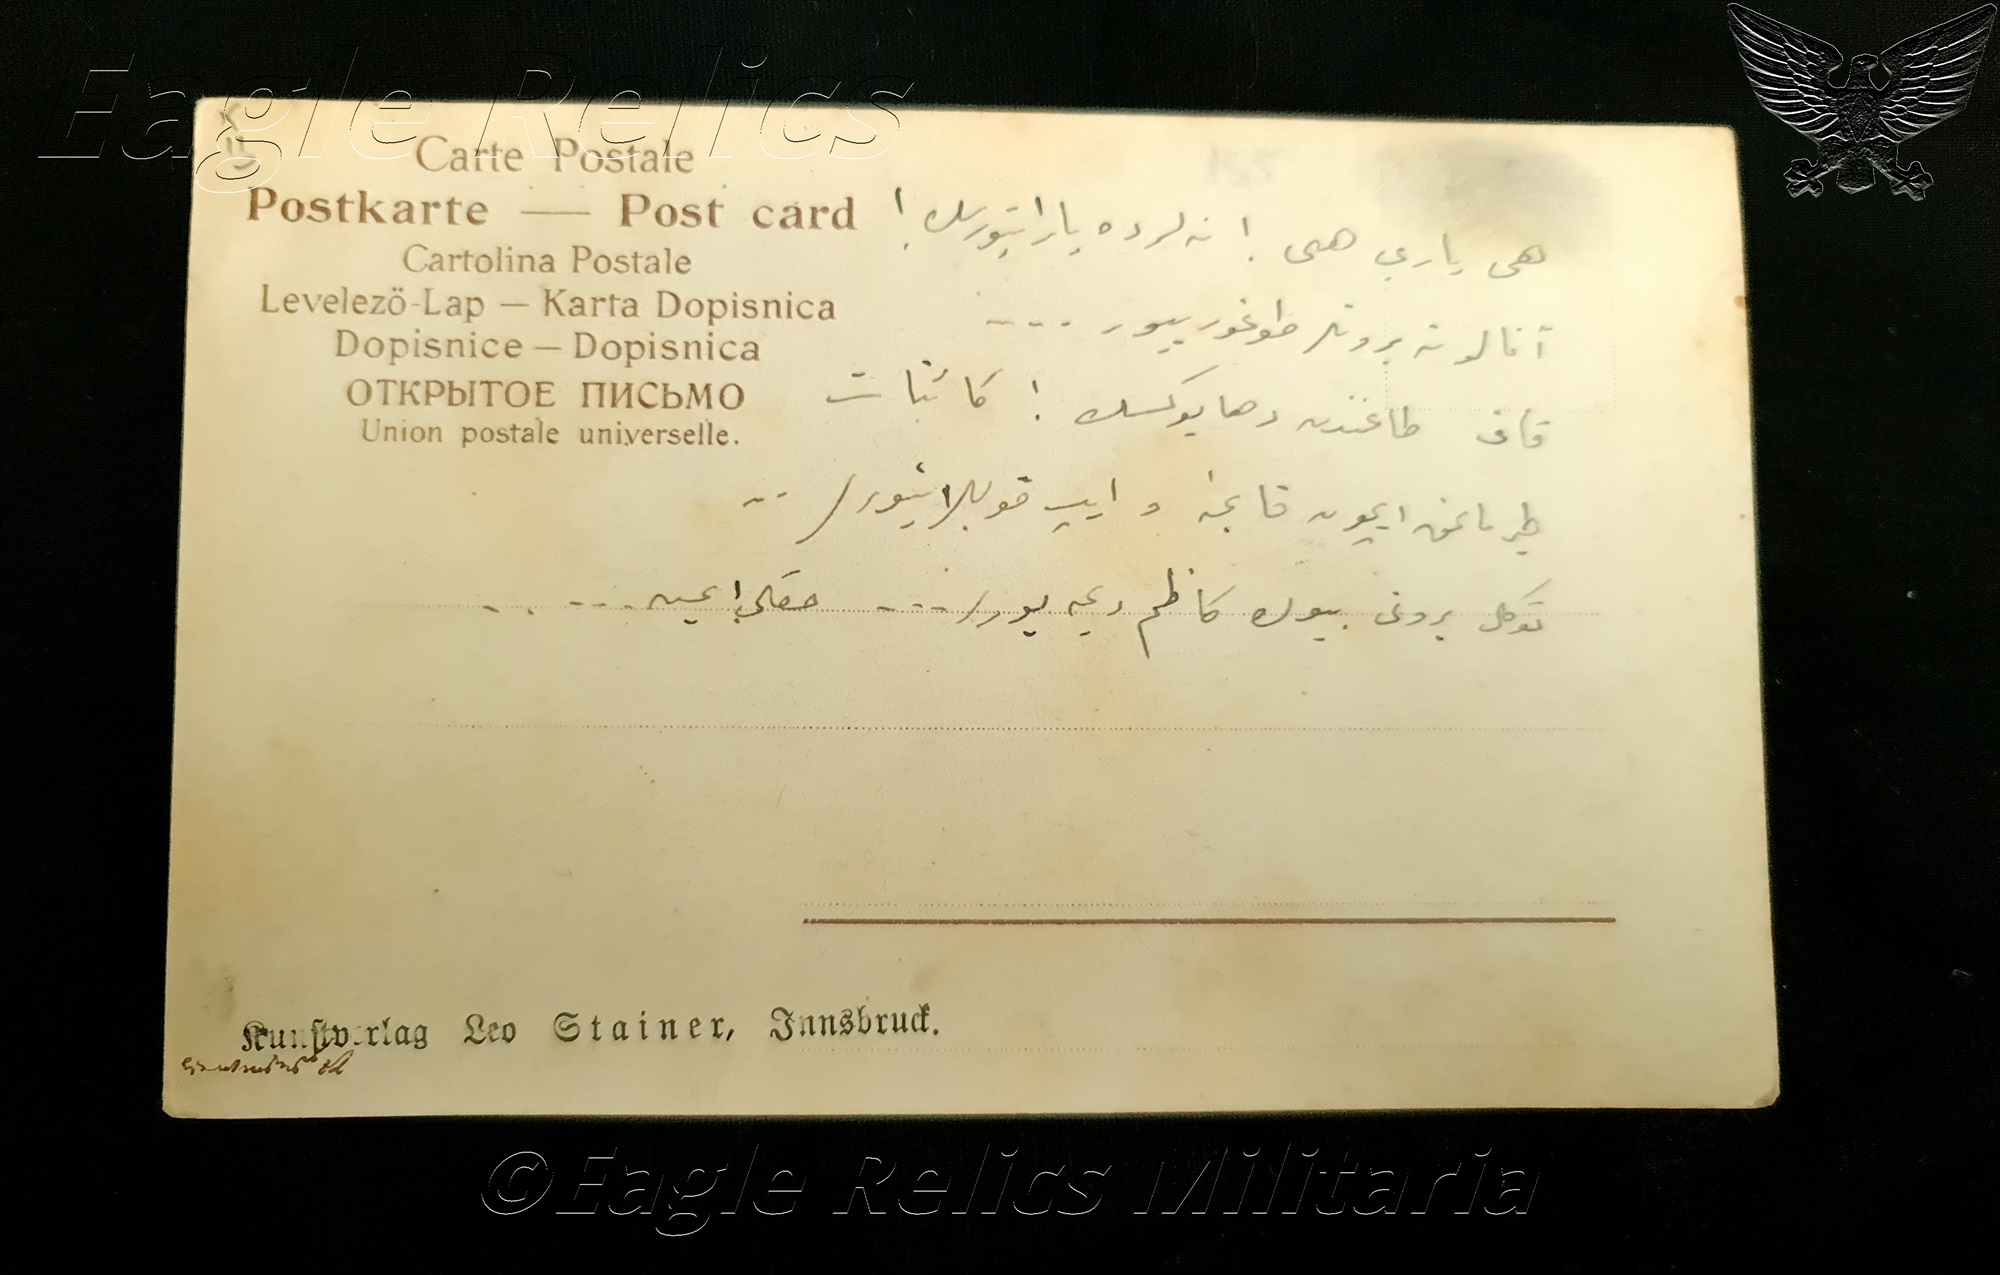 Eagle Relics
Carte Postale
Postkarte — Post card
Cartolina Postale
Levelező-Lap — Karta Dopisnica
Dopisnice — Dopisnica
ОТКРЫТОЕ ПИСЬМО
Union postale universelle.
هی یاربی هی ! نه لر ده یاراتیورسك !
آنالر نه بورونلر طوغورییور ....
قاف طاغندن دها یوكسك ! كائنات
طیرمانمق ایچون قانجه و ایپ
بورونی بیوك كاظم دیمه یورلر ....
Kunstverlag Leo Stainer, Innsbruck.
©Eagle Relics Militaria